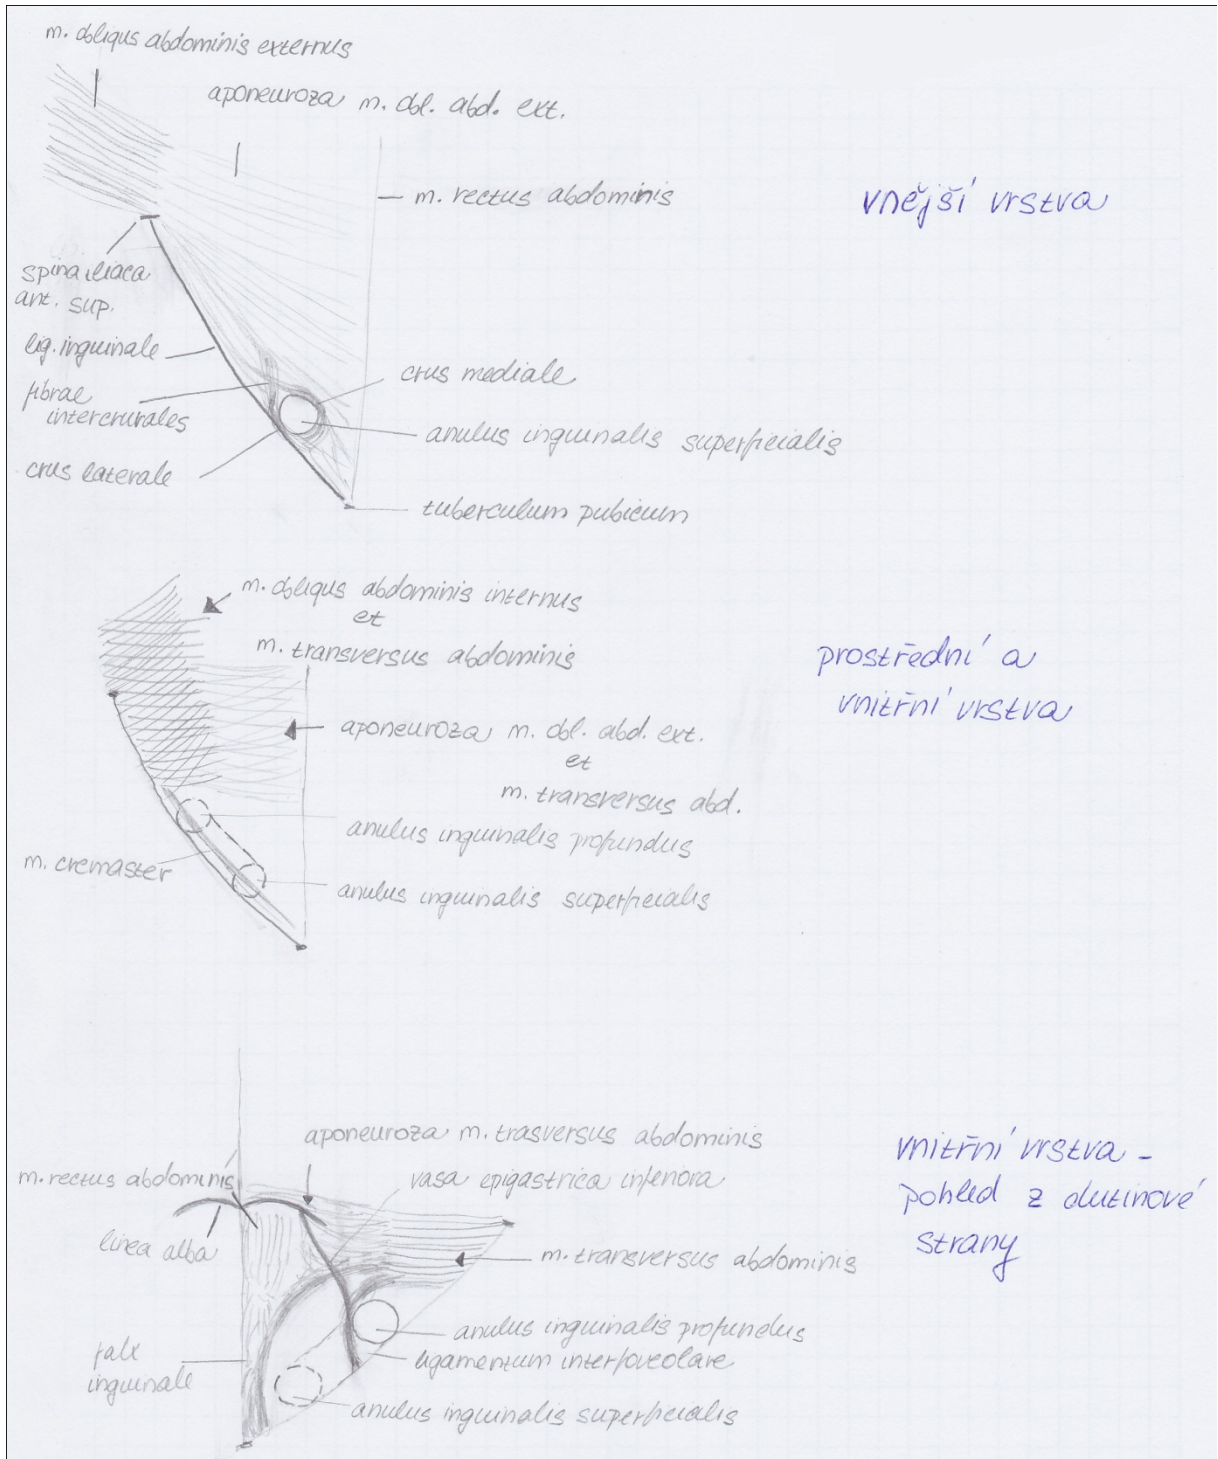 m. obliqus abdominis externus
aponeuroza m. obl. abd. ext.
m. rectus abdominis
vnější vrstva
spina iliaca
ant. sup.
lig. inguinale
fibrae
intercrurales
crus mediale
anulus inguinalis superficialis
crus laterale
tuberculum pubicum
m. obliqus abdominis internus
et
m. transversus abdominis
prostřední a
vnitřní vrstva
aponeuroza m. obl. abd. ext.
et
m. transversus abd.
anulus inguinalis profundus
m. cremaster
anulus inguinalis superficialis
aponeuroza m. trasversus abdominis
vnitřní vrstva -
pohled z dutinové
strany
m. rectus abdominis
vasa epigastrica inferiora
linea alba
m. transversus abdominis
anulus inguinalis profundus
ligamentum interfoveolare
falx
inguinale
anulus inguinalis superficialis